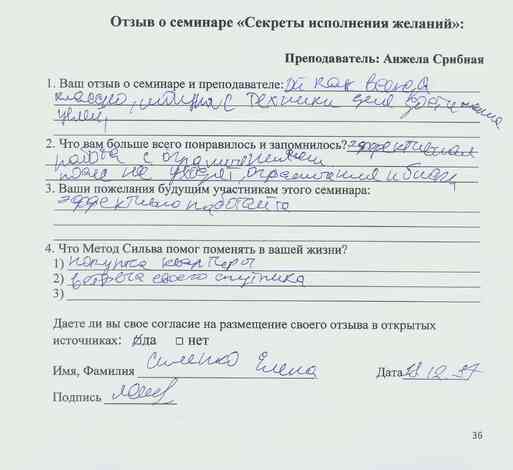 Отзыв о семинаре «Секреты исполнения желаний»:
Преподаватель: Анжела Срибная
1. Ваш отзыв о семинаре и преподавателе: как всегда
классно, техники для достижения
целей
2. Что вам больше всего понравилось и запомнилось? эффективная
работа с ограничениями
3. Ваши пожелания будущим участникам этого семинара:
эффективно работайте
4. Что Метод Сильва помог поменять в вашей жизни?
1) покупка квартиры
2) встреча своего спутника
3)
Даете ли вы свое согласие на размещение своего отзыва в открытых
источниках: да нет
Имя, Фамилия Сименко Елена Дата 12
Подпись
36